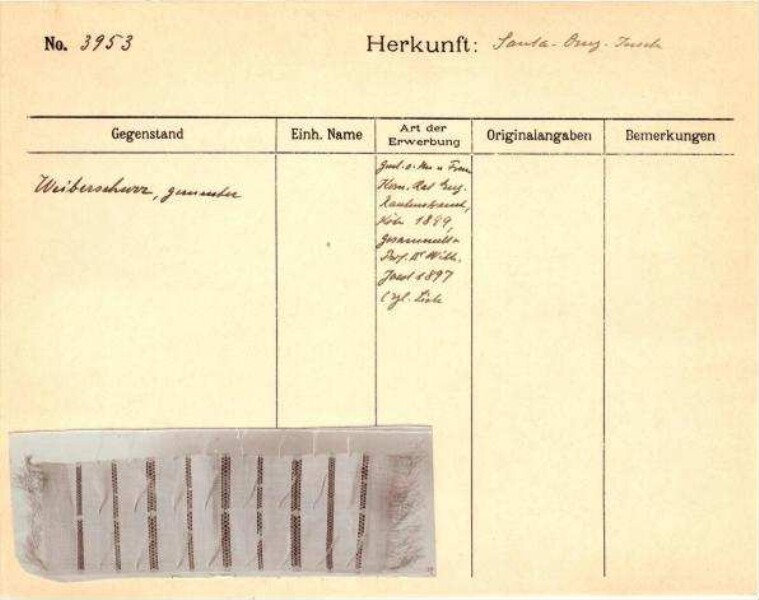 No. 3953
Herkunft: Santa-Cruz-Inseln
Gegenstand
Einh. Name
Art der
Erwerbung
Originalangaben
Bemerkungen
Weiberschurz, gemustert
u Frau
Eug.
Rautenstrauch,
Köln 1899,
gesammelt v.
Prof. Dr Wilh.
Joest 1897
(vgl. Liste